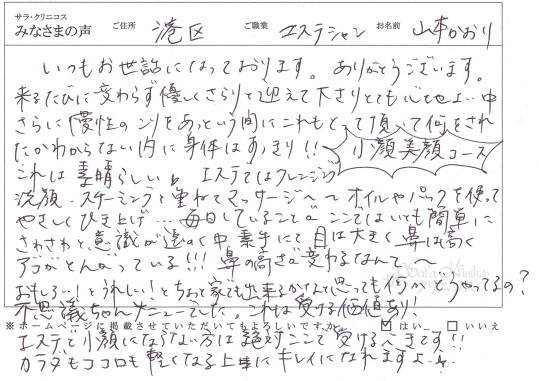 サラ・クリニコス
みなさまの声 ご住所 港区 ご職業 エステシャン お名前 山本かおり
いつもお世話になっております。ありがとうございます。
来るたびに変わらず優しくさらりと迎えて下さりとても心地よい中
さらに慢性のコリをあっという間にこれもとって頂いて何をされ
たかわからない内に身体はすっきり!! 小顔美顔コース
これは素晴らしい エステではクレンジング
洗顔・スチーミングと重ねてマッサージ〜〜オイルやパックを使って
やさしくひき上げ…毎日していることが。ここではいとも簡単に
さわさわと意識が遠のく中素手にて目は大きく鼻は高く
アゴがとんがっている!!!鼻の高さが変わるなんて〜
おもしろい!うれしい!とちょっと家でも出来るかなんて思っても何がどうやってるの?
不思議ちゃんメニューでした。これは受ける価値あり!
※ホームページに掲載させていただいてもよろしいですか ☑はい ☐いいえ
エステで小顔にならない方は絶対ここで受けるべきです!!
カラダもココロも軽くなる上にキレイになれますよ